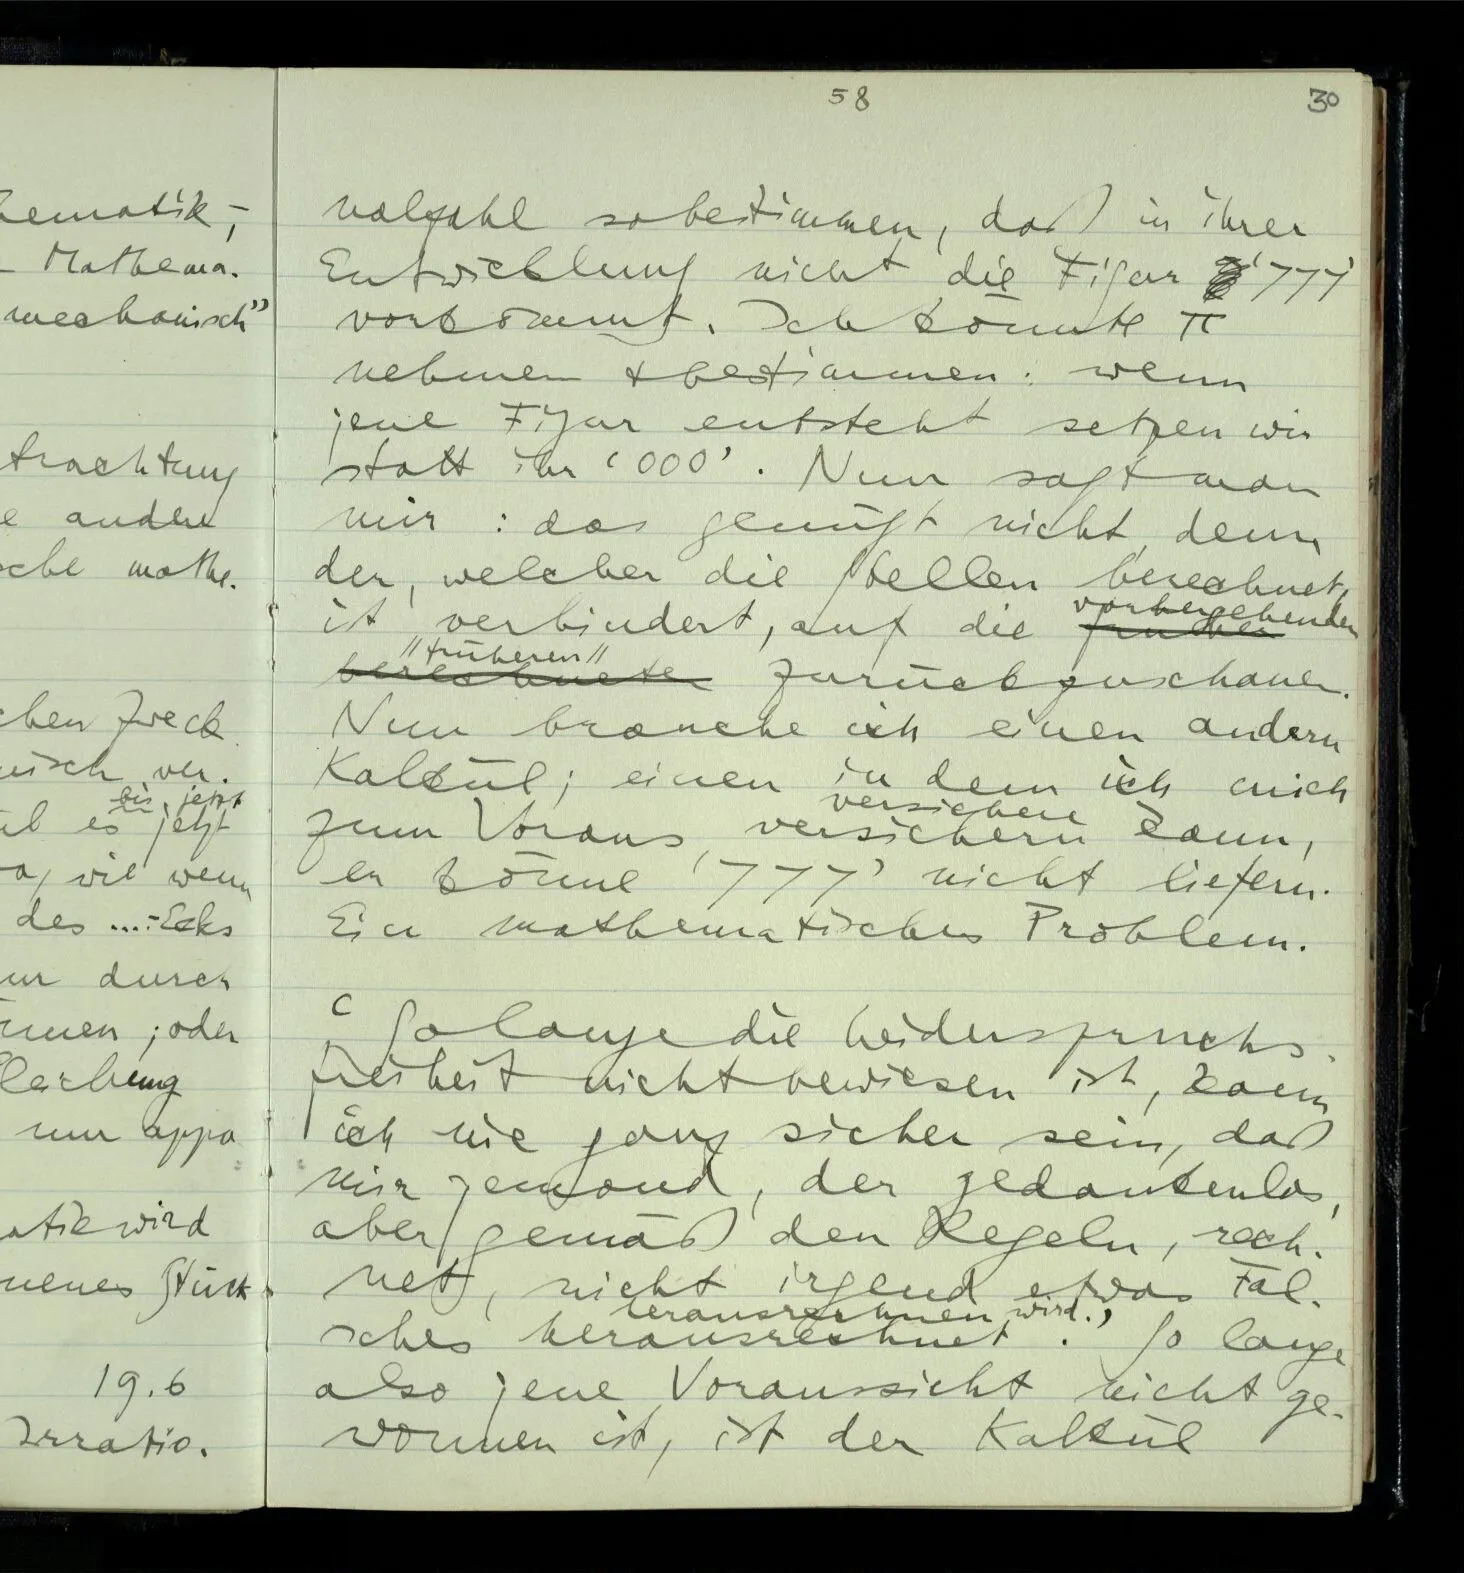 hematik,-
- Mathema.
mechanisch"
trachtung
e andere
sche mathe.
chen Zweck
nisch ver.
bis jetzt
es jetzt
wie wenn
des ...-Ecks
nur durch
; oder
nur appa
atik wird
neues Stück
19.6
Irratio.
58
30
nalzahl so bestimmen, daß in ihrer
Entwicklung nicht die Figur '777'
vorkommt. Ich könnte π
nehmen & bestimmen: wenn
jene Figur entsteht setzen wir
statt ihr '000'. Nun sagt man
mir: das genügt nicht, denn
der, welcher die Stellen berechnet,
vorhergehenden
ist verhindert, auf die früher
"früheren"
berechneten zurückzuschauen.
Nun brauche ich einen andern
Kalkül; einen in dem ich mich
versichere
zum Voraus versichern kann,
er könne '777' nicht liefern.
Ein mathematisches Problem.
c
So lange die Widerspruchs-
freiheit nicht bewiesen ist, kann
ich nie ganz sicher sein, daß
mir jemand, der gedankenlos,
aber gemäß den Regeln, rech-
net, nicht irgend etwas Fal-
herausrechnen wird.,
sches herausrechnet. So lange
also jene Voraussicht nicht ge-
wonnen ist, ist der Kalkül